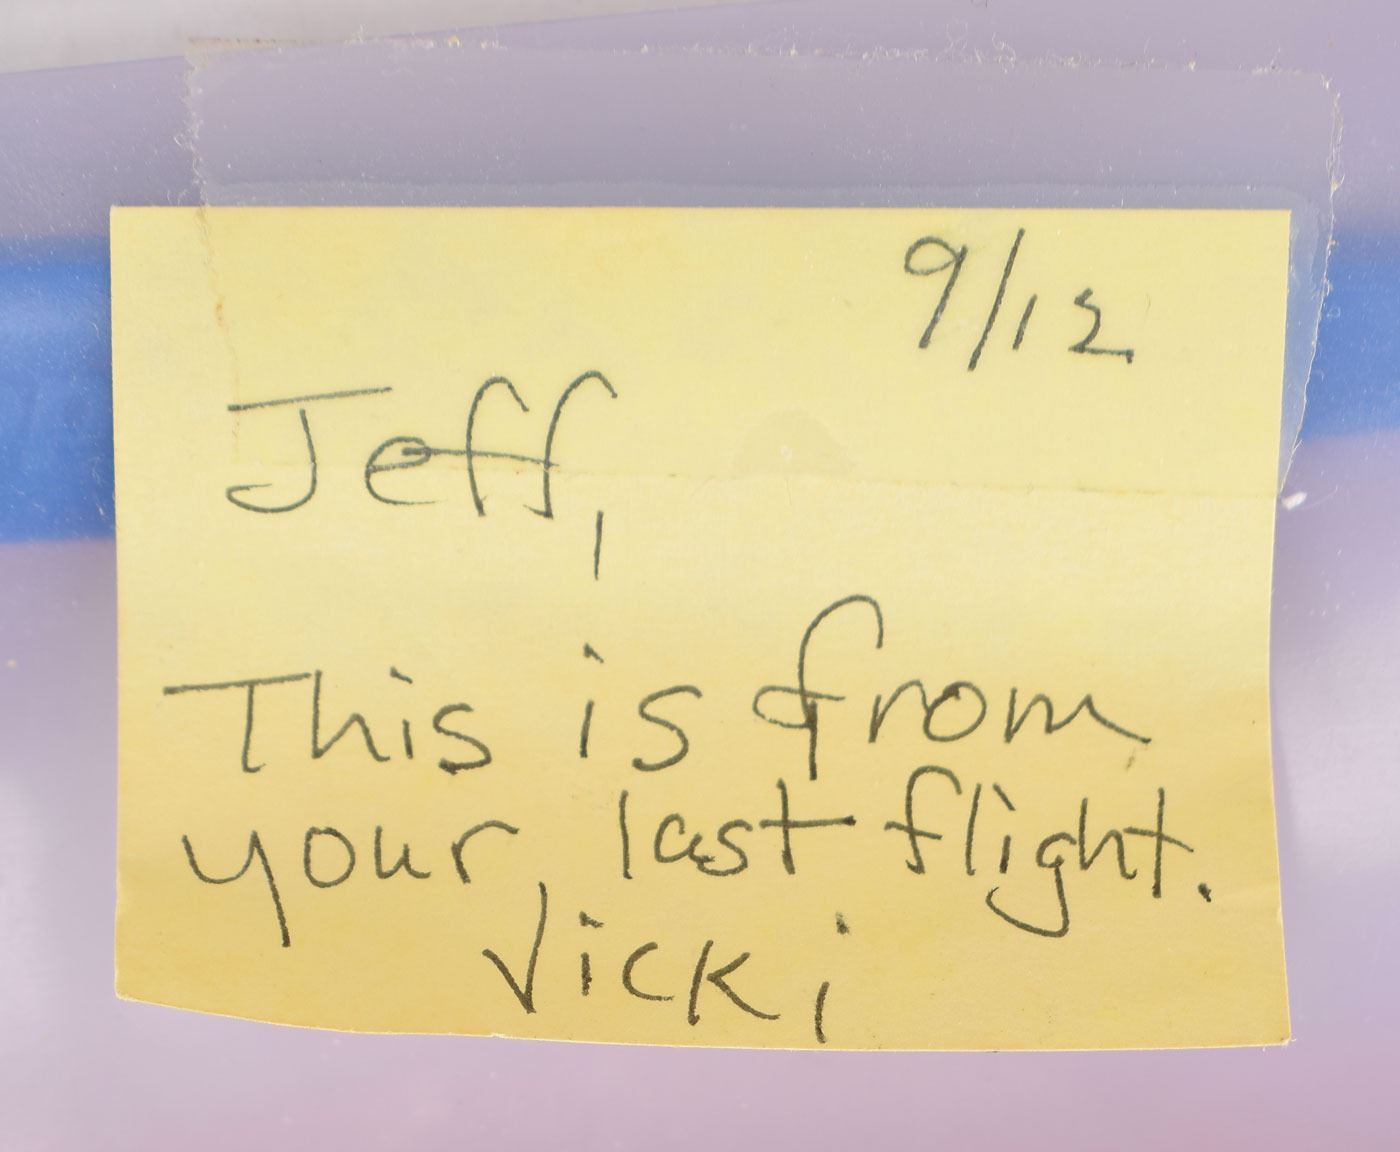 9/12
Jeff,
This is from
your last flight.
Vicki